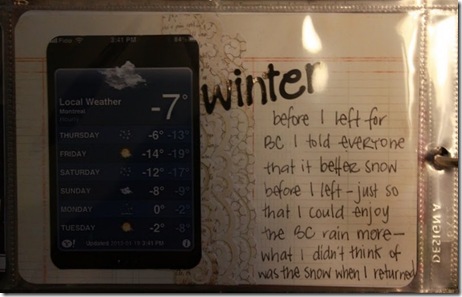 2:41 PM
Local Weather
Montreal
-7°
THURSDAY -6° -13°
FRIDAY -14° -19°
SATURDAY -12° -17°
SUNDAY -8° -9°
MONDAY 0° -2°
TUESDAY -2° -8°
Y! Updated 3:41 PM
winter
before I left for
BC I told everyone
that it better snow
before I left - just so
that I could enjoy
the BC rain more -
what I didn't think of
was the snow when I returned
DESIGN A